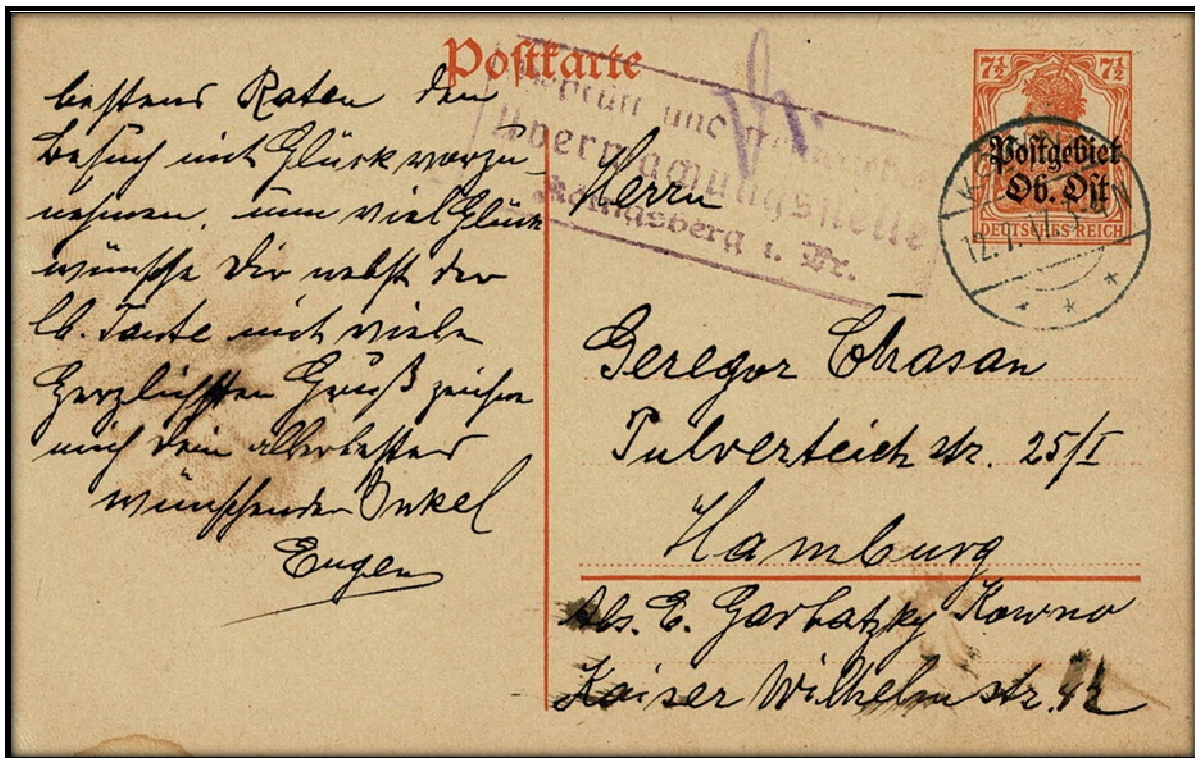 Postkarte
bestens Raten den
Besuch mit Glück vorzu-
nehmen. nun viel Glück
wünsche Dir nebst der
lb. Tante mit viele
Herzlichsten Gruß zeichne
mich Dein allerbestens
wünschender Onkel
Eugen
Geprüft und
Überwachungsstelle
Königsberg i. Pr.
7½ 7½
Postgebiet
Ob. Ost
DEUTSCHES REICH
12. 7. 17.
Herrn
Geregor Chasan
Pulverteich str. 25/I
Hamburg
Abs. E. Garbatzky Kowno
Kaiser Wilhelm str.